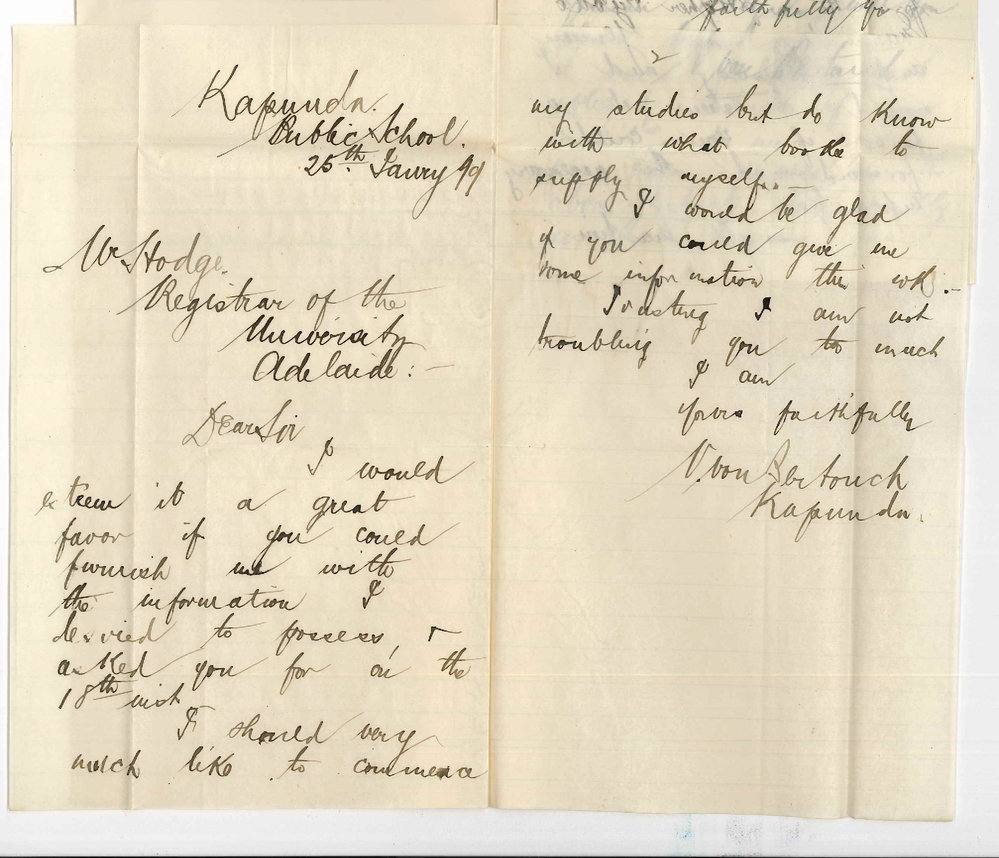 Kapunda.
Public School.
25th Janry 99
Mr Hodge.
Registrar of the
University
Adelaide:-
Dear Sir
I would
esteem it a great
favor if you could
furnish me with
the information I
desired to possess, &
asked you for on the
18th inst
I should very
much like to commence
2
my studies but do know
with what books to
supply myself..-
I would be glad
if you could give me
some information this wk.-
Trusting I am not
troubling you to much
I am
yours faithfully
V. von Bertouch
Kapunda.
faithfully yo